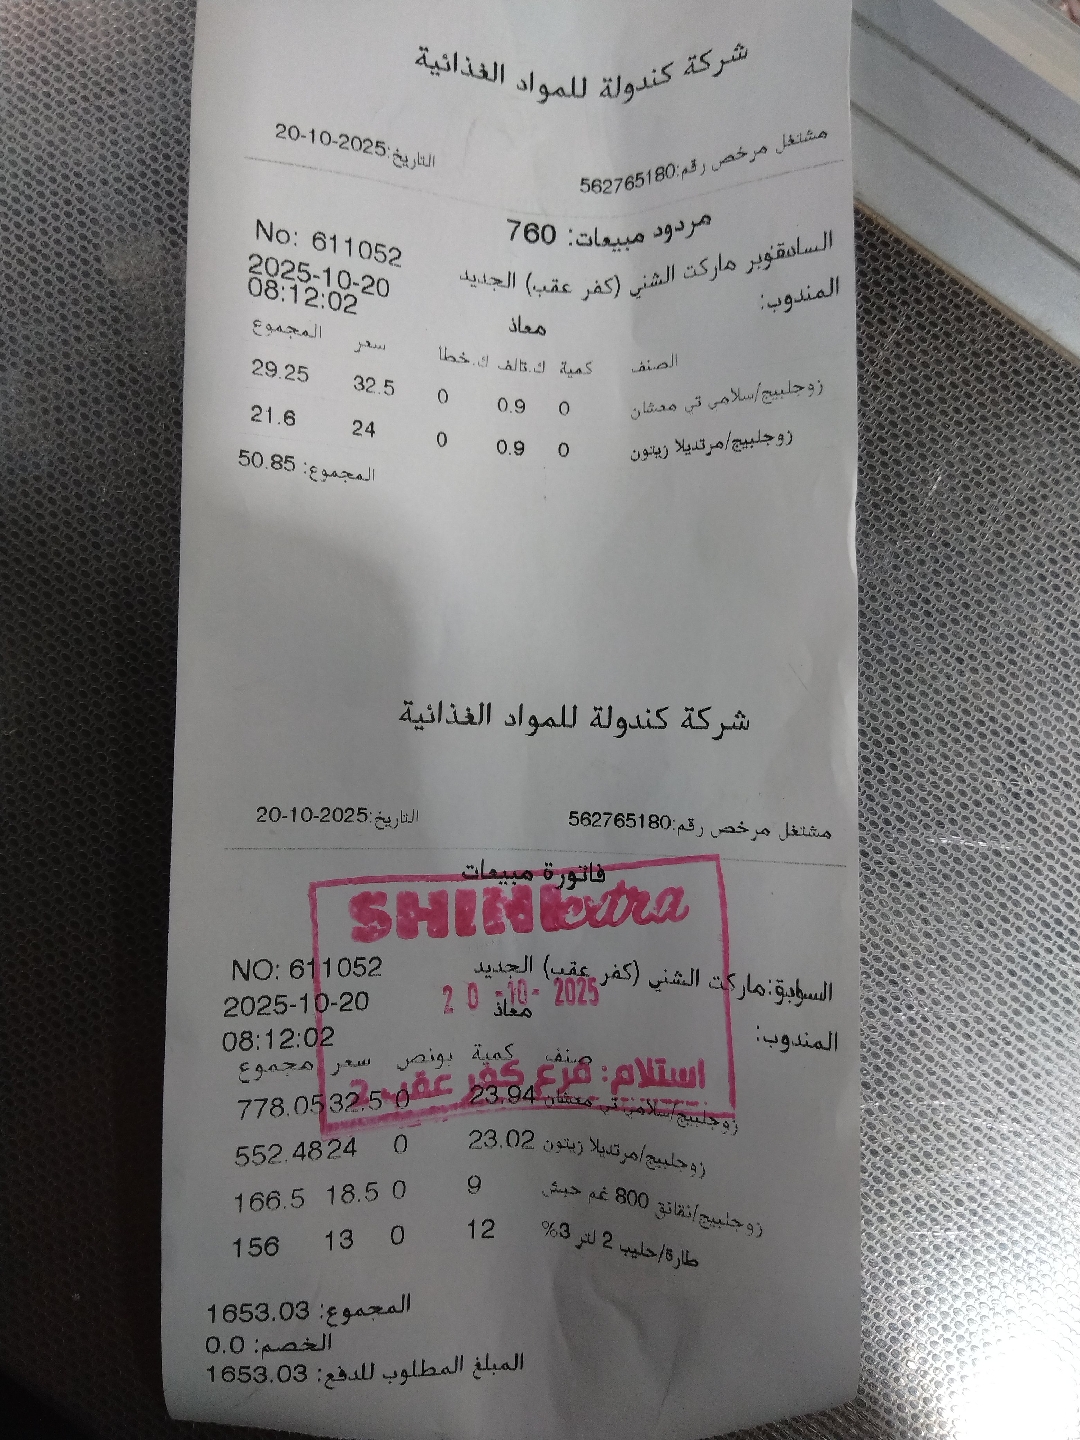 شركة كندولة للمواد الغذائية
مشتغل مرخص رقم:562765180 التاريخ:20-10-2025
مردود مبيعات: 760
No: 611052
ماركت الشني (كفر عقب) الجديد
2025-10-20
08:12:02
المندوب:
معاذ
الصنف كمية ك.تالف ك.خطا سعر المجموع
زوجلبيج/سلامي تي معشان 0 0.9 0 32.5 29.25
زوجلبيج/مرتديلا زيتون 0 0.9 0 24 21.6
المجموع: 50.85
شركة كندولة للمواد الغذائية
مشتغل مرخص رقم:562765180 التاريخ:20-10-2025
فاتورة مبيعات
SHINI extra
NO: 611052
ماركت الشني (كفر عقب) الجديد
2025-10-20
20 -10- 2025
معاذ
المندوب:
08:12:02
صنف كمية بونص سعر مجموع
استلام: فرع كفر عقب 2
زوجلبيج/سلامي تي معشان 23.94 0 32.5 778.05
زوجلبيج/مرتديلا زيتون 23.02 0 24 552.48
زوجلبيج/نقانق 800 غم حبش 9 0 18.5 166.5
طارة/حليب 2 لتر 3% 12 0 13 156
المجموع: 1653.03
الخصم: 0.0
المبلغ المطلوب للدفع: 1653.03